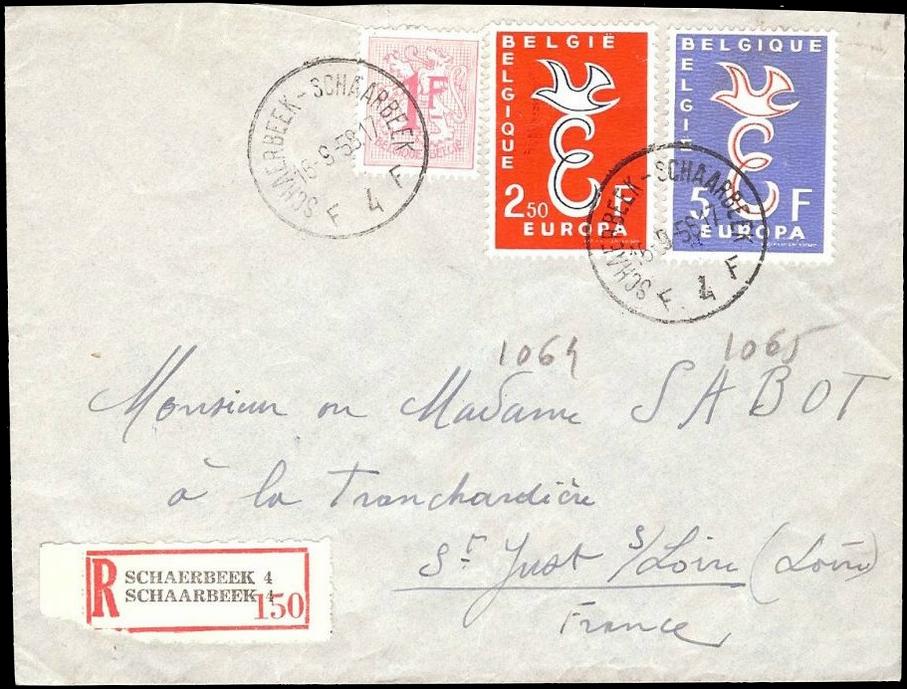 SCHAERBEEK - SCHAARBEEK
-9-58 17
F 4 F
1F
BELGIQUE BELGIË
BELGIË
BELGIQUE
2 50 F
EUROPA
BELGIQUE
BELGI
5 F
EUROPA
SCHAERBEEK - SCHAARBEEK
-9-58 17
F 4 F
1064 1065
Monsieur ou Madame SABOT
à la Tranchardière
St Just s/Loire (Loire)
France
R SCHAERBEEK 4
SCHAARBEEK 4
150